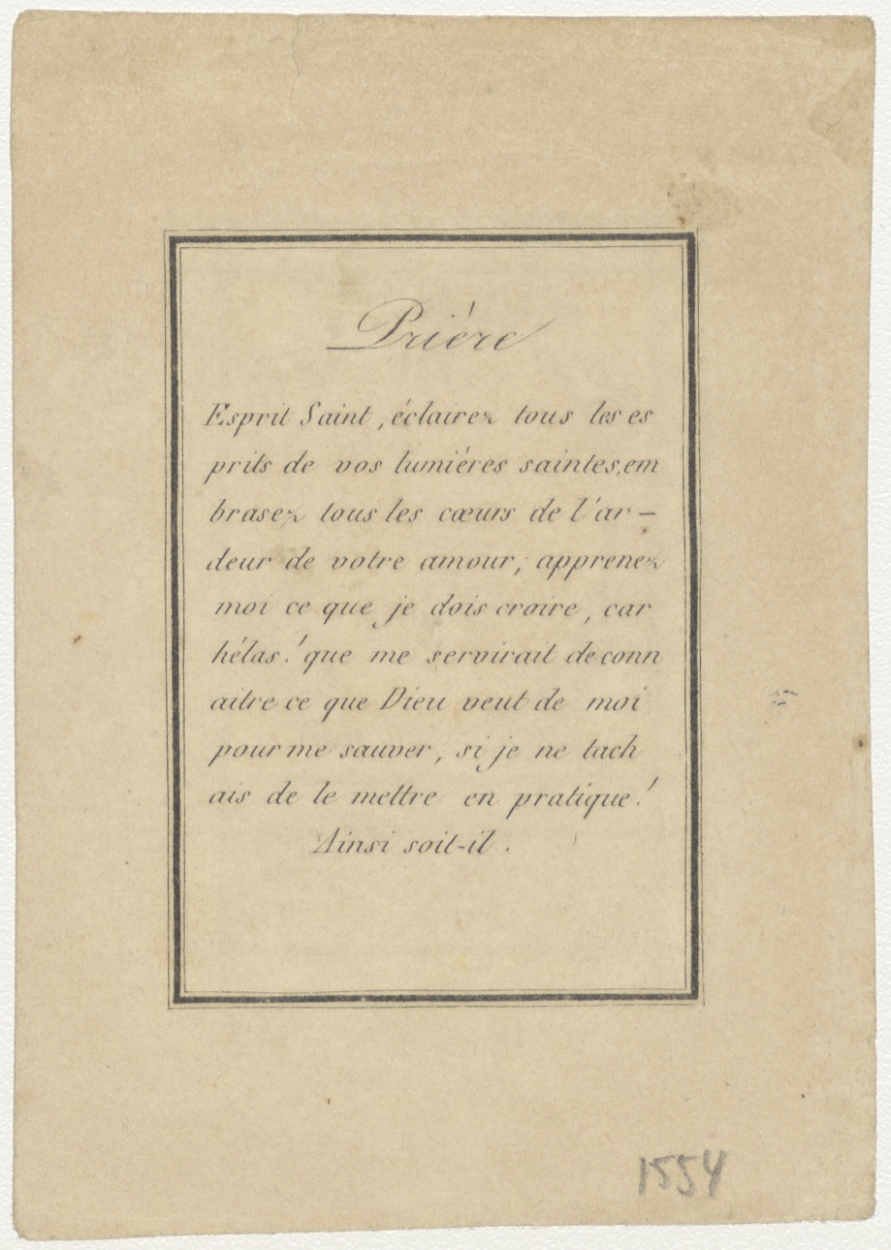 Prière
Esprit Saint, éclairez tous les es
prits de vos lumiéres saintes, em
brasez tous les cœurs de l'ar -
deur de votre amour, apprenez
moi ce que je dois croire, car
hélas! que me servirait de conn
aitre ce que Dieu veut de moi
pour me sauver, si je ne tach
ais de le mettre en pratique!
Ainsi soit-il.
1554